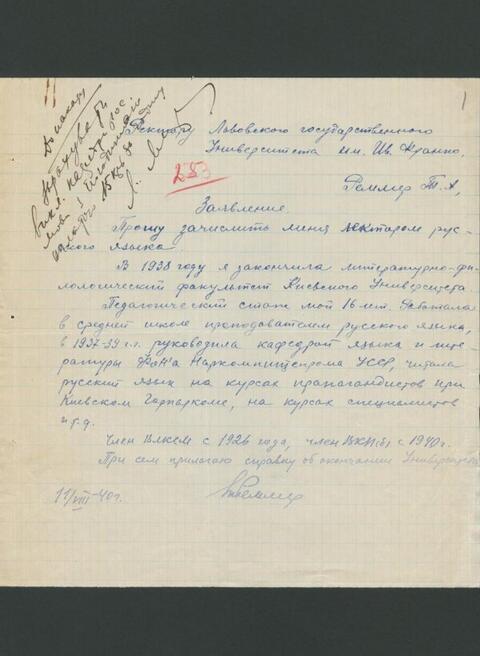 1
До наказу
Ректору Львовского государственного
Университета им. Ив. Франко.
283
Реммер Т. А,
Заявление.
Прошу зачислить меня лектором рус-
ского языка.
В 1938 году я закончила литературно-фи-
лологический факультет Киевского Университета.
Педагогический стаж мой 16 лет. Работала
в средней школе преподователем русского языка,
в 1937-39 г.г. руководила кафедрой языка и лите-
ратуры Наркомпищепрома УССР, читала
русский язык на курсах пропагандистов при
Киевском Горпарткоме, на курсах специалистов
и т.д.
Член ВЛКСМ с 1926 года, член ВКП(б) с 1940 г.
При сем прилагаю справку об окончании Университета
11/VIII-40 г.